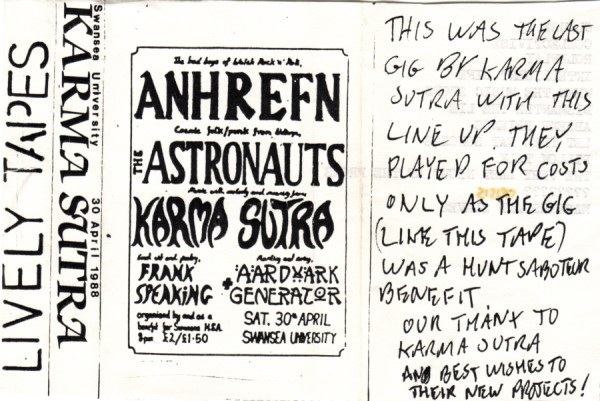 LIVELY TAPES
KARMA SUTRA
Swansea University 30 April 1988
The bad boys of Welsh Rock 'n' Roll,
ANHREFN
Cosmic folk/punk from Welwyn,
THE ASTRONAUTS
Music with melody and meaning from
KARMA SUTRA
Loud wit and poetry,
FRANK
SPEAKING
Ranting and raving,
+ AARDVARK
GENERATOR
organised by and as a
benefit for Swansea H.S.A.
8pm £2/£1·50
SAT. 30th APRIL
SWANSEA UNIVERSITY
THIS WAS THE LAST
GIG BY KARMA
SUTRA WITH THIS
LINE UP THEY
PLAYED FOR COSTS
ONLY AS THE GIG
(LIKE THIS TAPE)
WAS A HUNT SABOTEUR
BENEFIT.
OUR THANX TO
KARMA SUTRA
AND BEST WISHES TO
THEIR NEW PROJECTS!